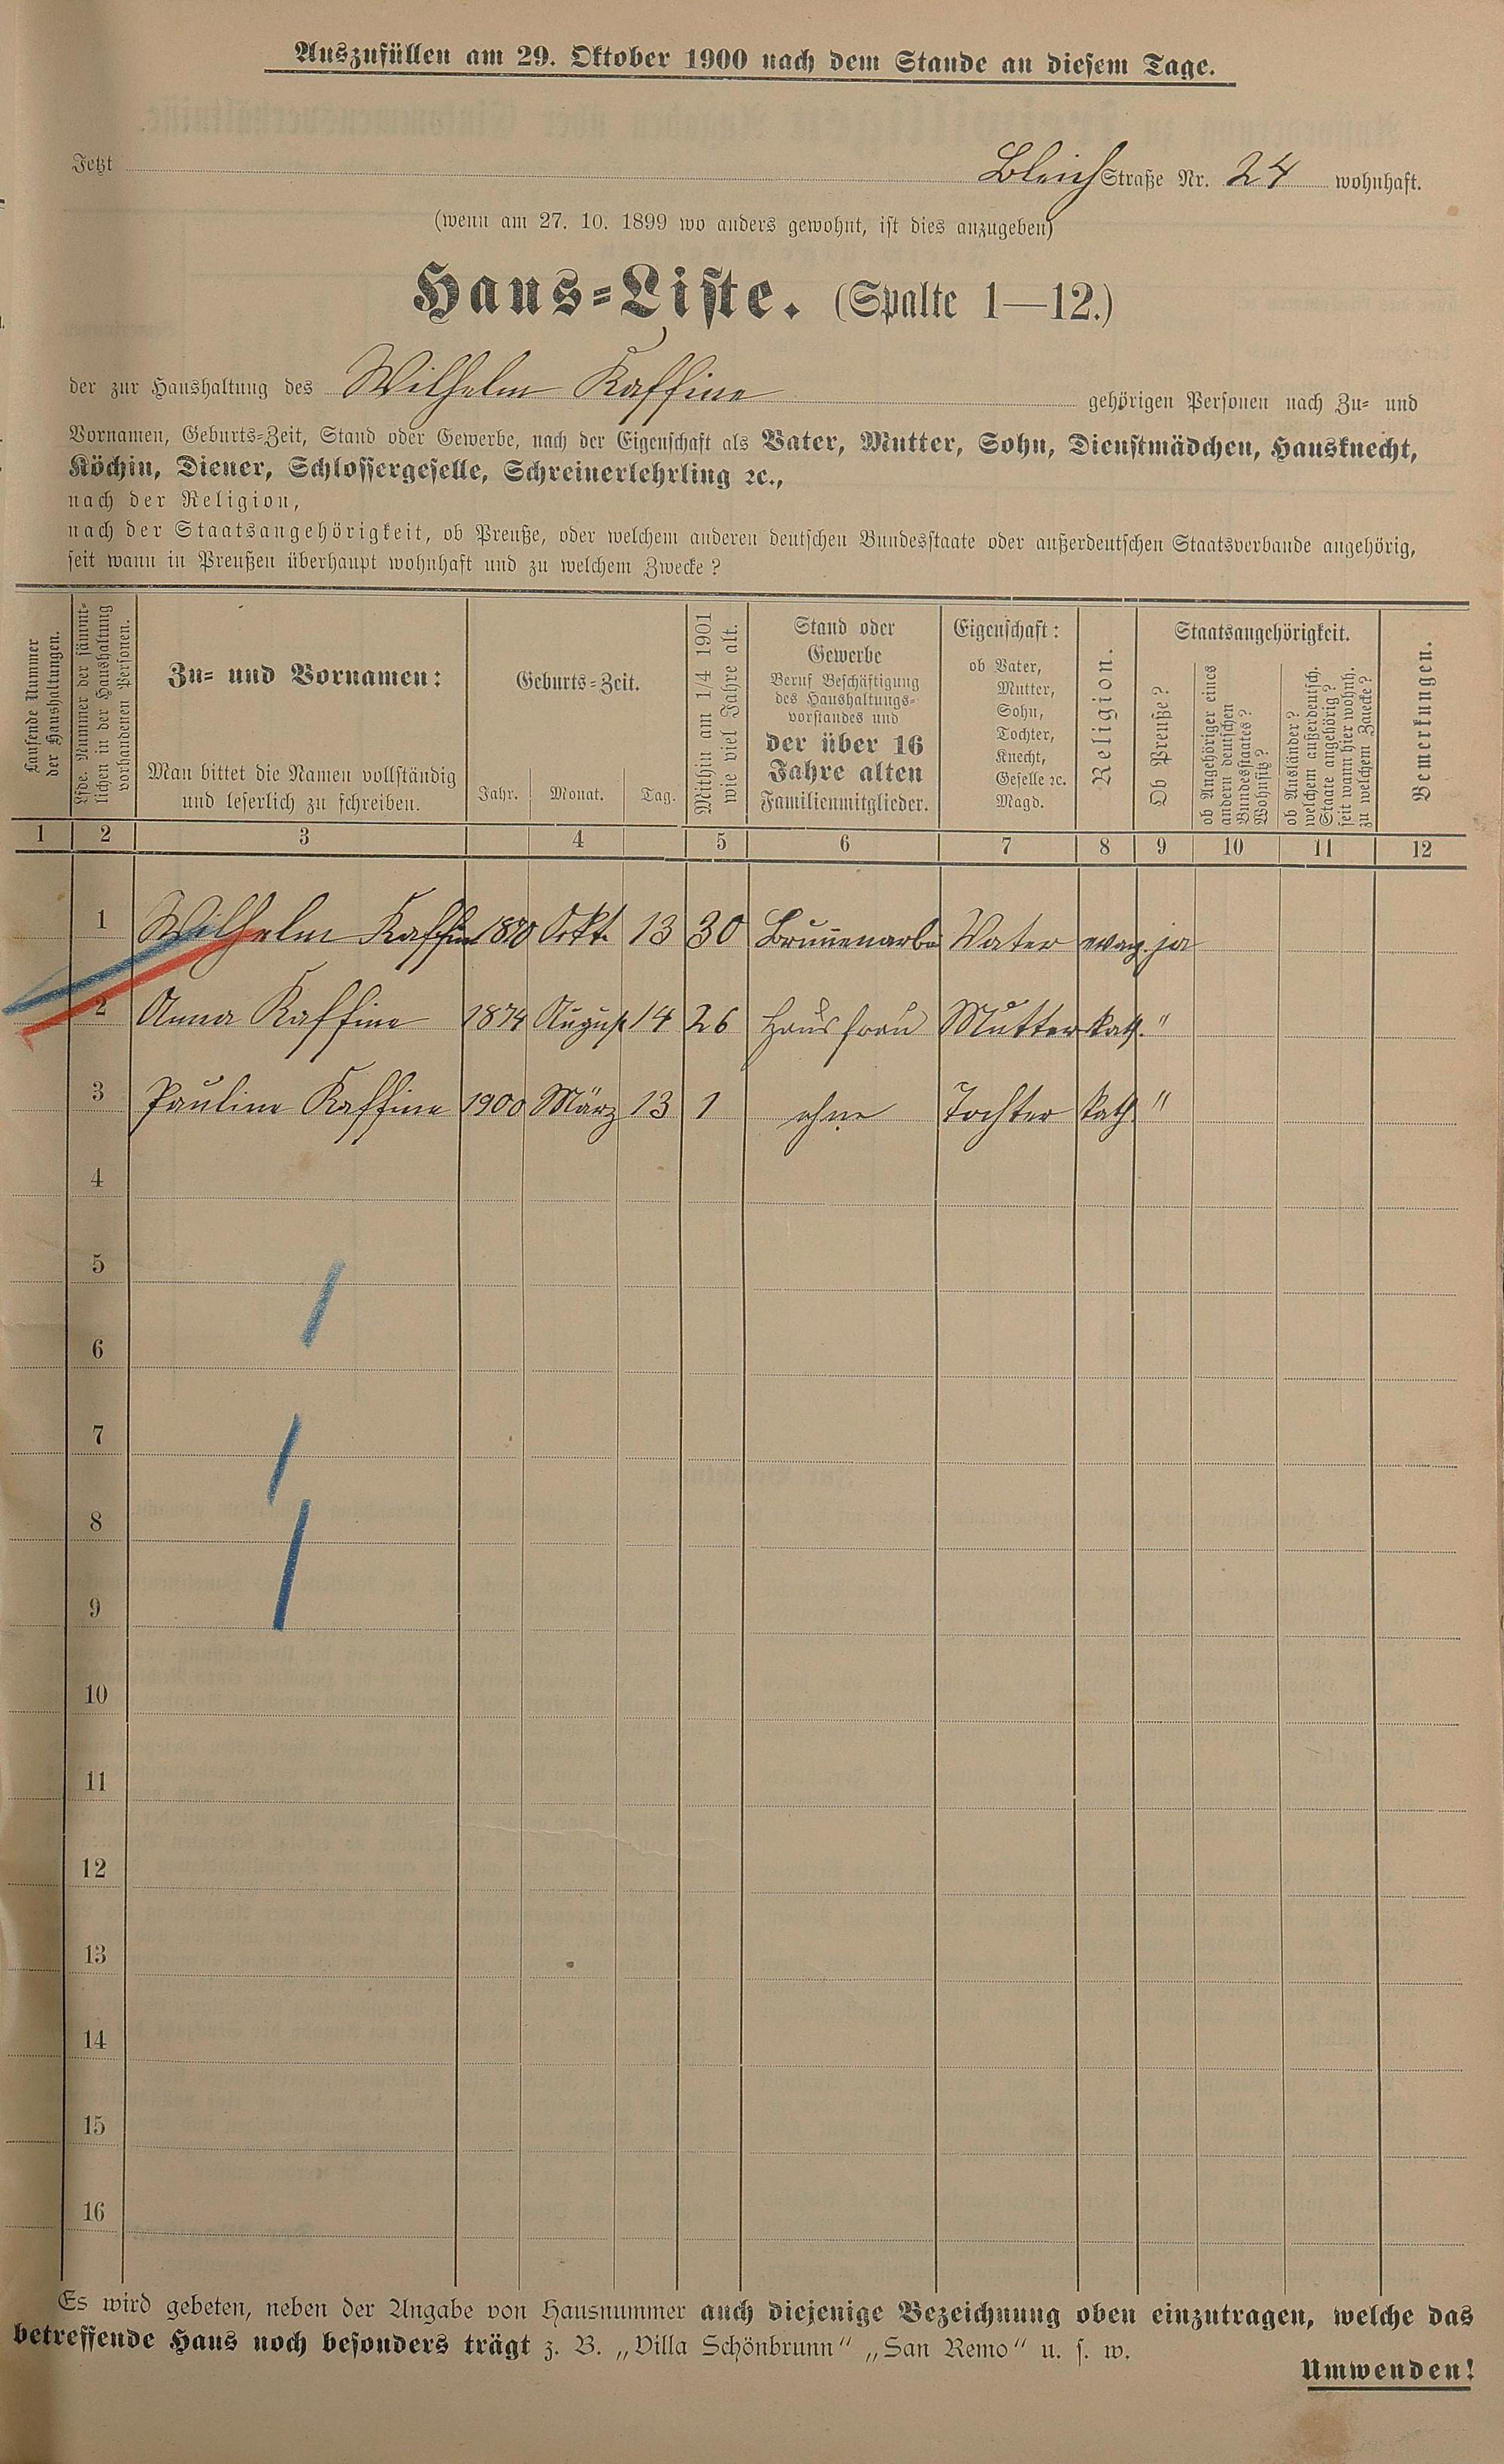 Auszufüllen am 29. Oktober 1900 nach dem Stande an diesem Tage.
Jetzt Bleich Straße Nr. 24 wohnhaft.
(wenn am 27. 10. 1899 wo anders gewohnt, ist dies anzugeben)
Haus-Liste. (Spalte 1—12.)
der zur Haushaltung des Wilhelm Kaffine gehörigen Personen nach Zu- und
Vornamen, Geburts-Zeit, Stand oder Gewerbe, nach der Eigenschaft als Vater, Mutter, Sohn, Dienstmädchen, Hausknecht,
Köchin, Diener, Schlossergeselle, Schreinerlehrling ꝛc.,
nach der Religion,
nach der Staatsangehörigkeit, ob Preuße, oder welchem anderen deutschen Bundesstaate oder außerdeutschen Staatsverbande angehörig,
seit wann in Preußen überhaupt wohnhaft und zu welchem Zwecke?
Laufende Nummer
der Haushaltungen.
Lfde. Nummer der sämmt-
lichen in der Haushaltung
vorhandenen Personen.
Zu- und Vornamen:
Man bittet die Namen vollständig
und leserlich zu schreiben.
Geburts-Zeit.
Jahr. Monat. Tag.
Mithin am 1/4 1901
wie viel Jahre alt.
Stand oder
Gewerbe
Beruf Beschäftigung
des Haushaltungs-
vorstandes und
der über 16
Jahre alten
Familienmitglieder.
Eigenschaft:
ob Vater,
Mutter,
Sohn,
Tochter,
Knecht,
Geselle ꝛc.
Magd.
Religion.
Staatsangehörigkeit.
Ob Preuße?
ob Angehöriger eines
andern deutschen
Bundesstaates?
Wohnsitz?
ob Ausländer?
welchem außerdeutsch.
Staate angehörig?
seit wann hier wohnh.
zu welchem Zwecke?
Bemerkungen.
1 2 3 4 5 6 7 8 9 10 11 12
1 Wilhelm Kaffine 1870 Okt. 13 30 Brunnenarbei Vater evang. ja
2 Anna Kaffine 1874 August 14 26 Hausfrau Mutter kath. "
3 Pauline Kaffine 1900 März 13 1 ohne Tochter kath. "
4
5
6
7
8
9
10
11
12
13
14
15
16
Es wird gebeten, neben der Angabe von Hausnummer auch diejenige Bezeichnung oben einzutragen, welche das
betreffende Haus noch besonders trägt z. B. „Villa Schönbrunn" „San Remo" u. s. w.
Umwenden!